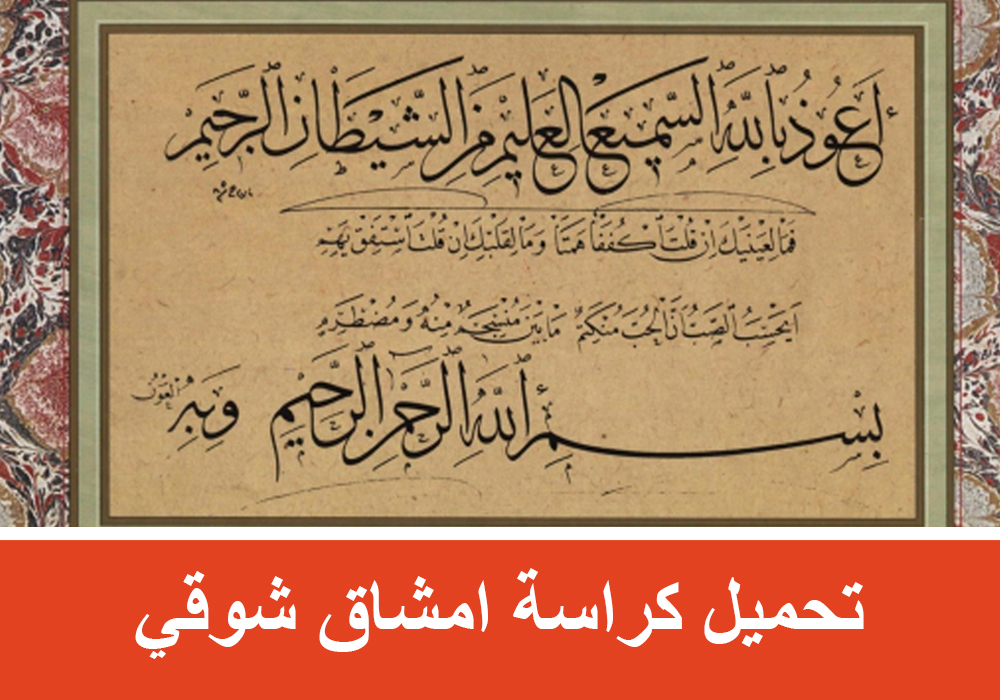 أَعُوذُ بِاللَّهِ السَّمِيعِ الْعَلِيمِ مِنَ الشَّيْطَانِ الرَّجِيمِ
فَمَا لِعَيْنَيْكَ اِنْ قُلْتَ اكْفُفَا هَمَتَا وَمَا لِقَلْبِكَ اِنْ قُلْتَ اسْتَفِقْ يَهِمِ
اَيَحْسَبُ الصَّبُّ اَنَّ الْحُبَّ مُنْكَتِمٌ مَا بَيْنَ مُنْسَجِمٍ مِنْهُ وَمُضْطَرِمِ
بِسْمِ اللَّهِ الرَّحْمٰنِ الرَّحِيمِ وَبِهِ الْعَوْنُ
تحميل كراسة امشاق شوقي